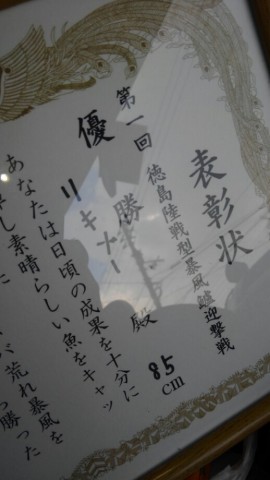 表彰状
第一回 徳島陸戦型暴風鱸迎撃戦
優勝
リキメー 殿
85cm
あなたは日頃の成果を十分に
素晴らしい魚をキャッ
荒れ暴風を
勝った